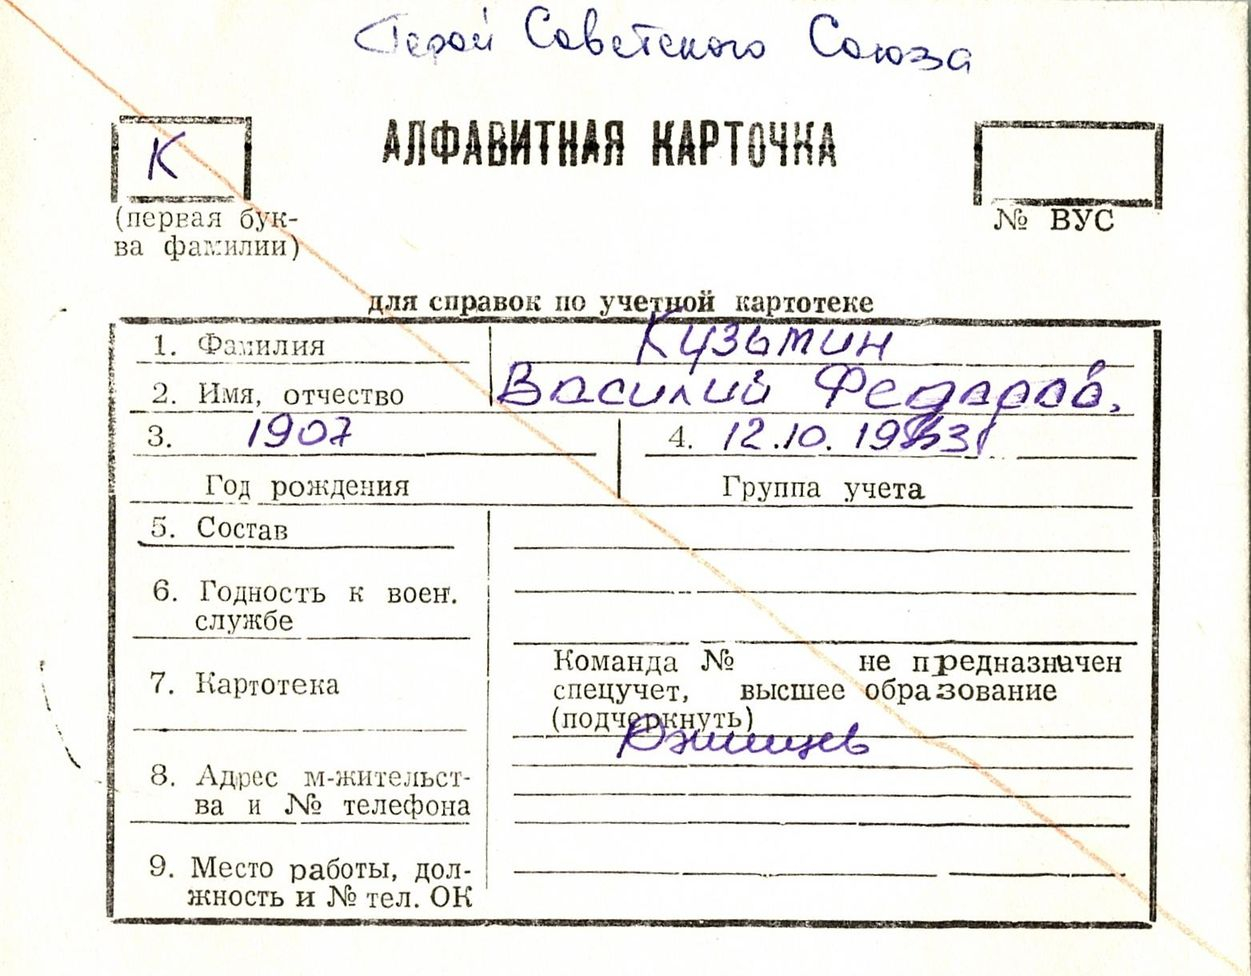 Герой Советского Союза
К
АЛФАВИТНАЯ КАРТОЧКА
(первая бук-
ва фамилии)
№ ВУС
для справок по учетной картотеке
1. Фамилия Кузьмин
2. Имя, отчество Василий
3. 1907 4. 12.10.
Год рождения Группа учета
5. Состав
6. Годность к воен.
службе
7. Картотека
Команда № не предназначен
спецучет, высшее образование
(подчеркнуть)
8. Адрес м-жительст-
ва и № телефона
9. Место работы, дол-
жность и № тел. ОК